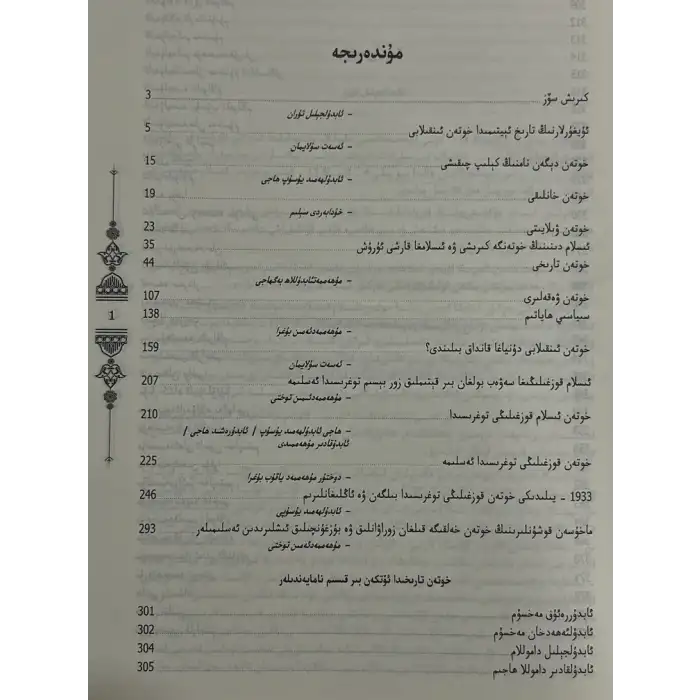 مۇندەرىجە
كىرىش سۆز 3
- ئابدۇلجېلىل تۇران
ئۇيغۇرلارنىڭ تارىخ ئېيتىمىدا خوتەن ئىنقىلابى 5
- ئەسەت سۇلايمان
خوتەن دېگەن نامنىڭ كېلىپ چىقىشى 15
- ئابدۇلھەمىد يۈسۈپ ھاجى
خوتەن خانلىقى 19
- خۇدابەردى سېلىم
خوتەن ۋىلايىتى 23
ئىسلام دىنىنىڭ خوتەنگە كىرىشى ۋە ئىسلامغا قارشى ئۇرۇش 35
خوتەن تارىخى 44
- مۇھەممەتئابدۇللاھ بەگھاجى
خوتەن ۋەقەلىرى 107
سىياسىي ھاياتىم 138
- مۇھەممەدئەمىن بۇغرا
خوتەن ئىنقىلابى دۇنياغا قانداق بىلىندى؟ 159
- ئەسەت سۇلايمان
ئىسلام قوزغىلىڭىغا سەۋەب بولغان بىر قېتىملىق زور بېسىم توغرىسىدا ئەسلىمە 207
- مۇھەممەدئىمىن توختى
خوتەن ئىسلام قوزغىلىڭى توغرىسىدا 210
- ھاجى ئابدۇلھەمىد يۈسۈپ / ئابدۇرەشىد ھاجى /
ئابدۇقادىر مۇھەممىدى
خوتەن قوزغىلىڭى توغرىسىدا ئەسلىمە 225
- دوختۇر مۇھەممەد ياقۇپ بۇغرا
1933 - يىلىدىكى خوتەن قوزغىلىڭى توغرىسىدا بىلگەن ۋە ئاڭلىغانلىرىم 246
- ئابدۇلھەمىد يۈسۈپى
ماخۇسەن قوشۇنلىرىنىڭ خوتەن خەلقىگە قىلغان زوراۋانلىق ۋە بۇزغۇنچىلىق ئىشلىرىدىن ئەسلىمىلەر 293
- مۇھەممەدئەمىن توختى
خوتەن تارىخىدا ئۆتكەن بىر قىسىم نامايەندىلەر
ئابدۇررەئۇق مەخسۇم 301
ئابدۇلئەھەدخان مەخسۇم 302
ئابدۇلجېلىل داموللام 304
ئابدۇلقادىر داموللا ھاجىم 305
1